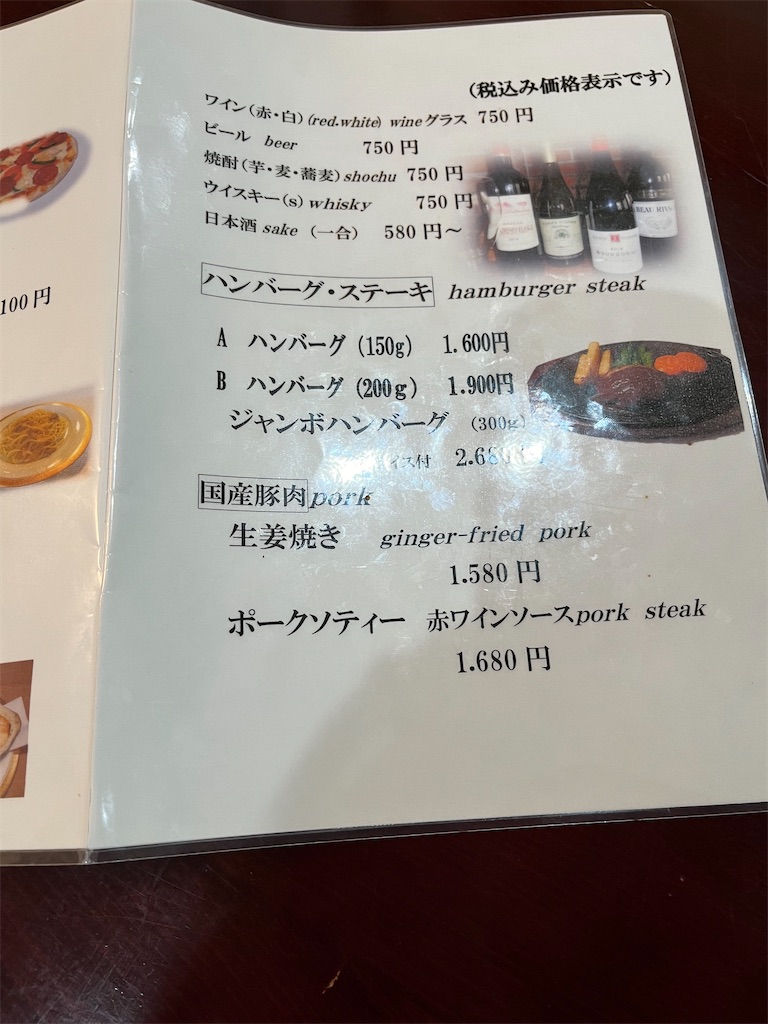 (税込み価格表示です)
ワイン(赤・白)(red.white) wineグラス 750 円
ビール beer 750 円
焼酎(芋・麦・蕎麦)shochu 750 円
ウイスキー(s)whisky 750 円
日本酒 sake (一合) 580 円～
ハンバーグ・ステーキ hamburger steak
A ハンバーグ (150g) 1.600円
B ハンバーグ (200g) 1.900円
ジャンボハンバーグ (300g)
イス付 2.680
国産豚肉 pork
生姜焼き ginger-fried pork
1.580 円
ポークソティー 赤ワインソースpork steak
1.680 円
100 円